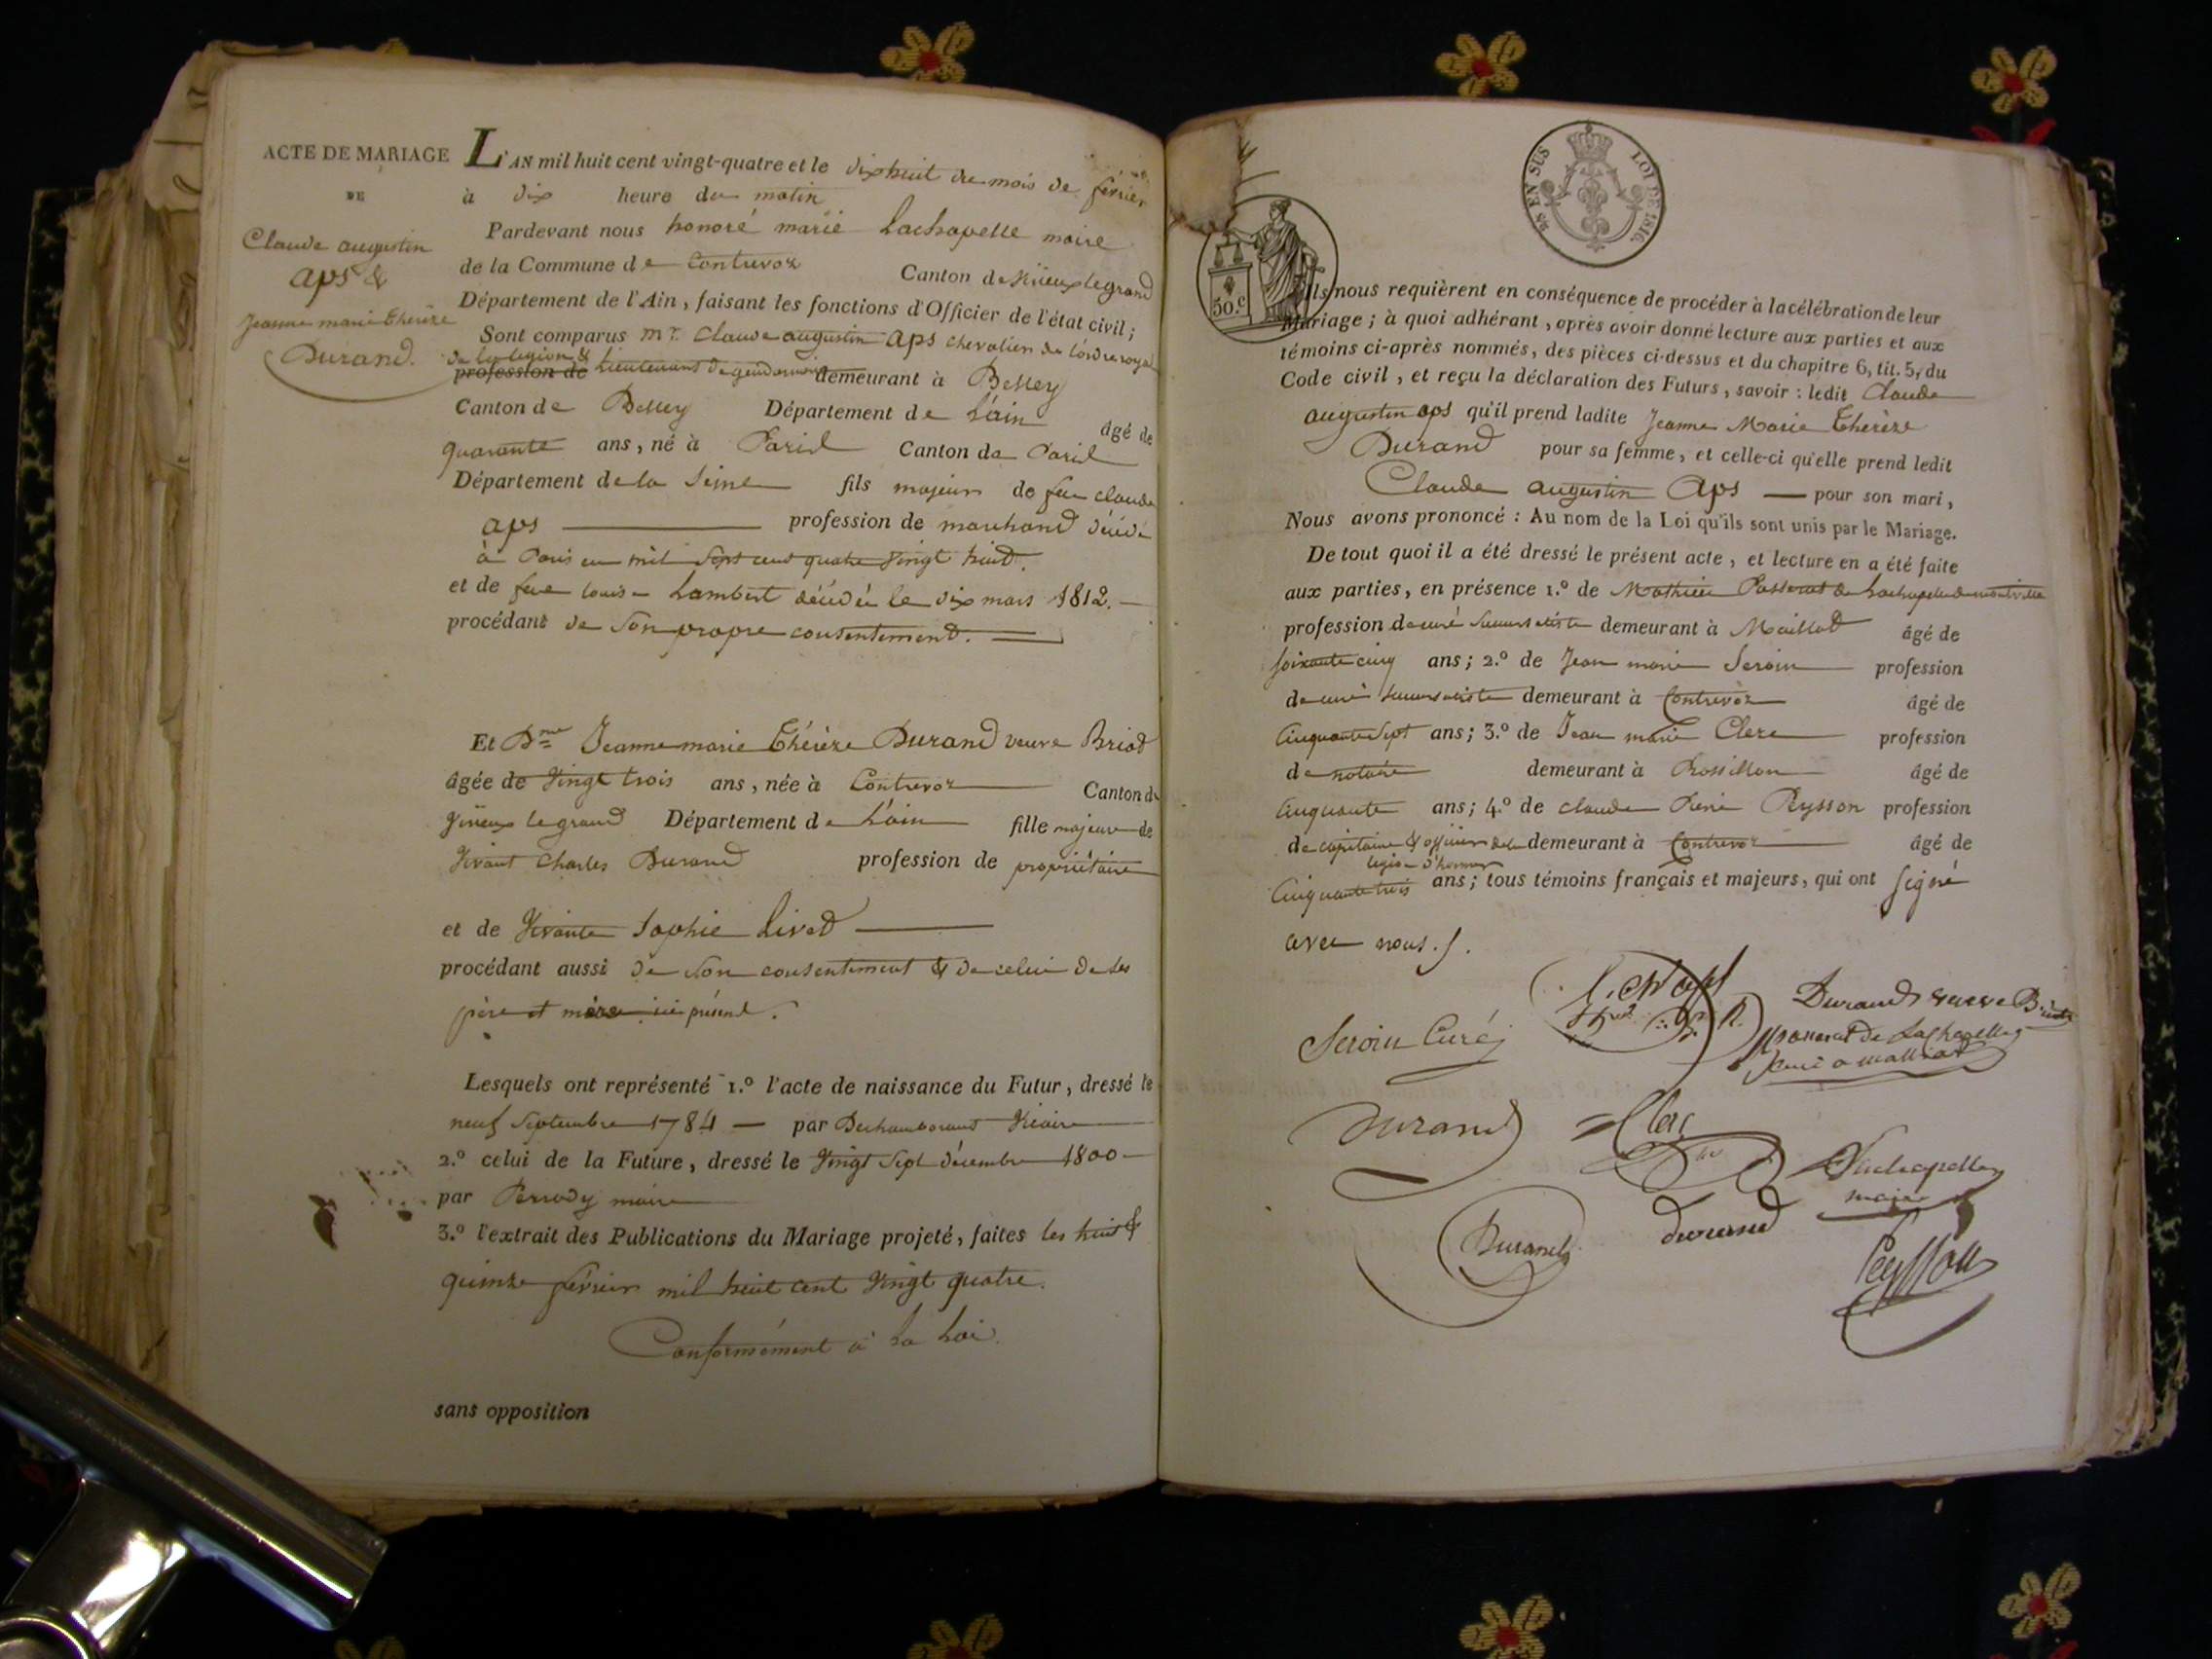 ACTE DE MARIAGE
DE
Claude augustin
aps &
Jeanne marie Therèze
Durand.
L'AN mil huit cent vingt-quatre et le dixhuit du mois de février
à dix heure du matin
Pardevant nous honoré marie Lachapelle maire
de la Commune de Contrevoz Canton de Virieux le grand
Département de l'Ain, faisant les fonctions d'Officier de l'état civil;
Sont comparus mr. Claude augustin aps chevalier de l'ordre royal
de la legion &
profession de Lieutenant de gendarmerie demeurant à Belley
Canton de Belley Département de L'ain âgé de
quarante ans, né à Paris Canton de Paris
Département de la Seine fils majeur de feu claude
aps profession de marchand décédé
à Paris en mil sept cent quatre vingt huit.
et de feue louise Lambert décédée le dix mars 1812.
procédant de son propre consentement.
Et Dme Jeanne marie Thérèze Durand veuve Briod
âgée de vingt trois ans, née à Contrevoz Canton de
Virieux le grand Département de L'ain fille majeure de
vivant Charles Durand profession de propriétaire
et de vivante Sophie Livet
procédant aussi de son consentement & de celui de ses
père et mère ici présent.
Lesquels ont représenté 1.º l'acte de naissance du Futur, dressé le
neuf Septembre 1784 — par Vicaire
2.º celui de la Future, dressé le vingt sept décembre 1800
par Perrody maire
3.º l'extrait des Publications du Mariage projeté, faites les huit &
quinze février mil huit cent vingt quatre.
Conformément à la Loi.
sans opposition
EN SUS LOI DE 1816.
50.c
Ils nous requièrent en conséquence de procéder à la célébration de leur
Mariage; à quoi adhérant, après avoir donné lecture aux parties et aux
témoins ci-après nommés, des pièces ci-dessus et du chapitre 6, tit. 5, du
Code civil, et reçu la déclaration des Futurs, savoir: ledit Claude
augustin aps qu'il prend ladite Jeanne Marie Therèze
Durand pour sa femme, et celle-ci qu'elle prend ledit
Claude augustin Aps — pour son mari,
Nous avons prononcé: Au nom de la Loi qu'ils sont unis par le Mariage.
De tout quoi il a été dressé le présent acte, et lecture en a été faite
aux parties, en présence 1.º de Mathieu Passerat de Lachapelle
profession de curé succursaliste demeurant à Maillat âgé de
soixante cinq ans; 2.º de Jean marie Seroin profession
de curé succursaliste demeurant à Contrevoz âgé de
Cinquante sept ans; 3.º de Jean marie Clerc profession
de notaire demeurant à Rossillon âgé de
Cinquante ans; 4.º de claude René Peysson profession
de capitaine & officier de la demeurant à Contrevoz âgé de
legion d'honneur
Cinquante trois ans; tous témoins français et majeurs, qui ont signé
avec nous.
Seroin Curé
Durand veuve Briod
passerat de Lachapelle
curé a maillat
Durand
Clerc
Lachapelle
maire
Durand
durand
Peysson